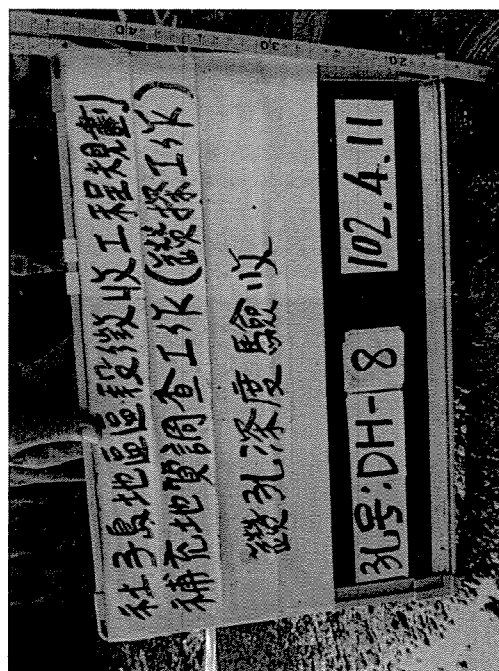 社子島地區區段徵收工程規劃
補充地質調查工作(鑽探工作)
鑽孔深度驗收
孔号:DH-18 102.4.11
40 30 20